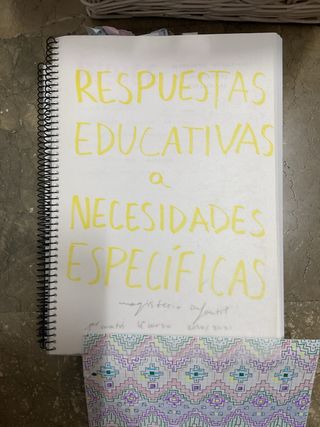 RESPUESTAS
EDUCATIVAS
a
NECESIDADES
ESPECÍFICAS
magisterio infantil
curso 2020/2021